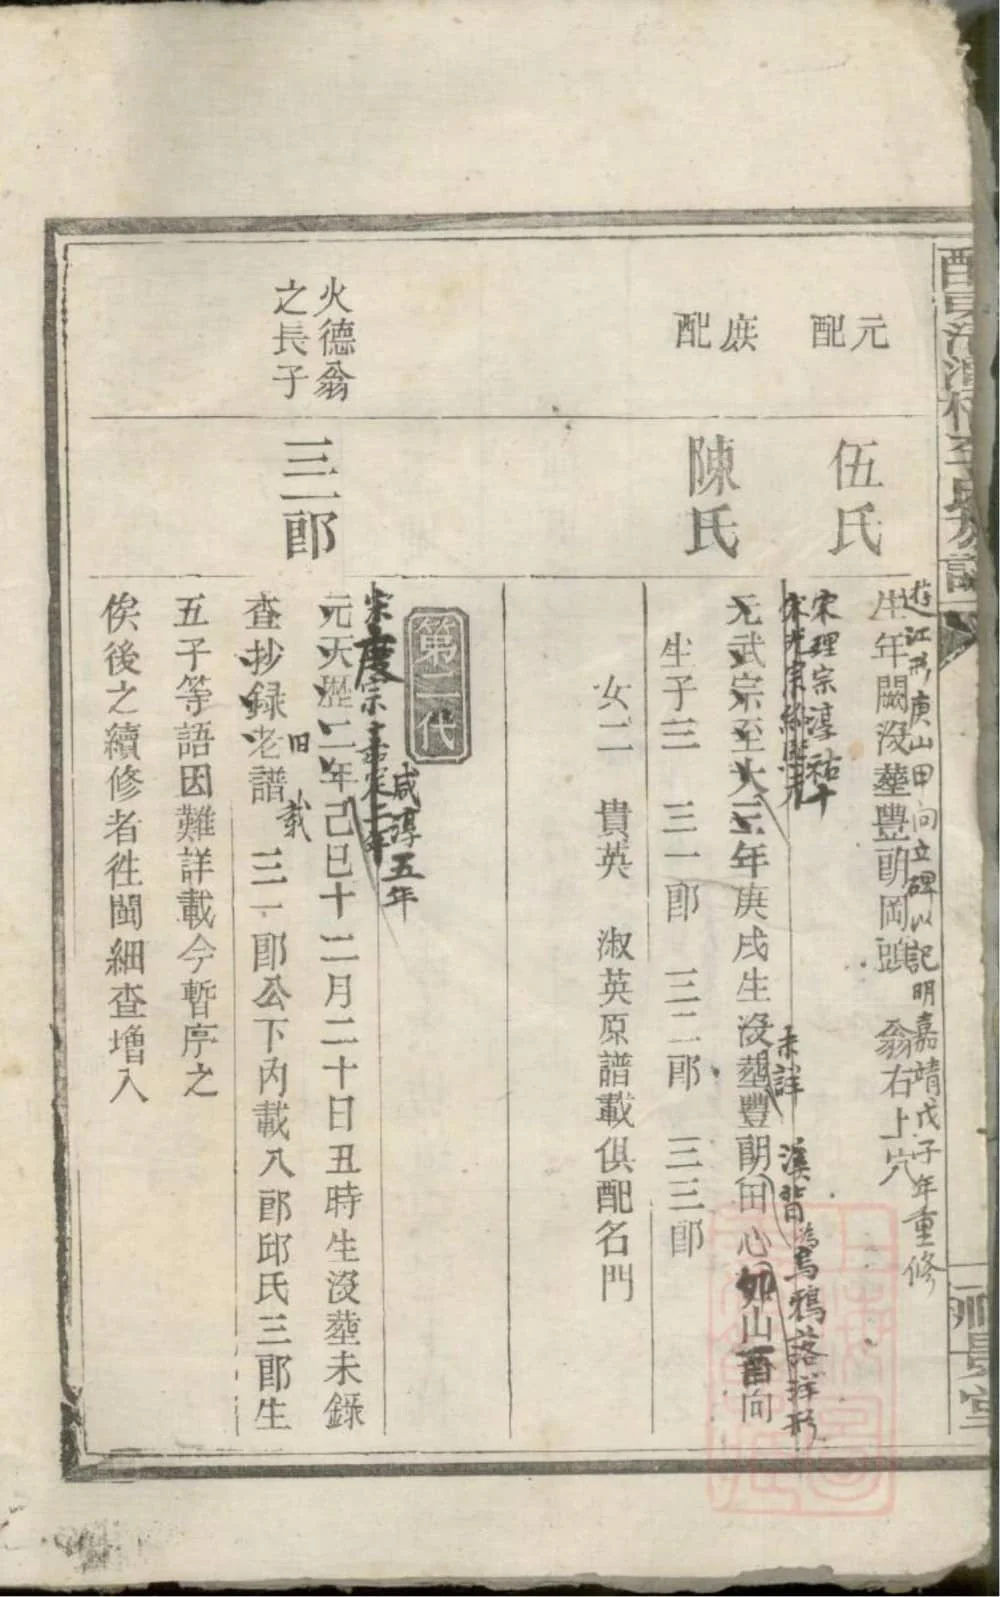 元
配
伍氏
生年闕沒塟豐朗岡頭　翁右上穴
遊江形庚山甲向立碑以記明嘉靖戊子年重修
宋理宗淳祐十
宋光宗紹熙元
庶
配
陳氏
元武宗至大三年庚戌生沒塟豐朗田心卯山酉向
未詳　溪背為烏鴉落洋形
生子三　三一郎　三二郎　三三郎
女二　貴英　淑英原譜載俱配名門
第二代
火德翁
之長子
三一郎
元天歷二年己巳十二月二十日丑時生沒塟未錄
宋度宗
咸淳五年
查抄録老譜　三一郎公下內載八郎邱氏三郎生
旧載
五子等語因難詳載今暫序之
俟後之續修者徃閩細查增入